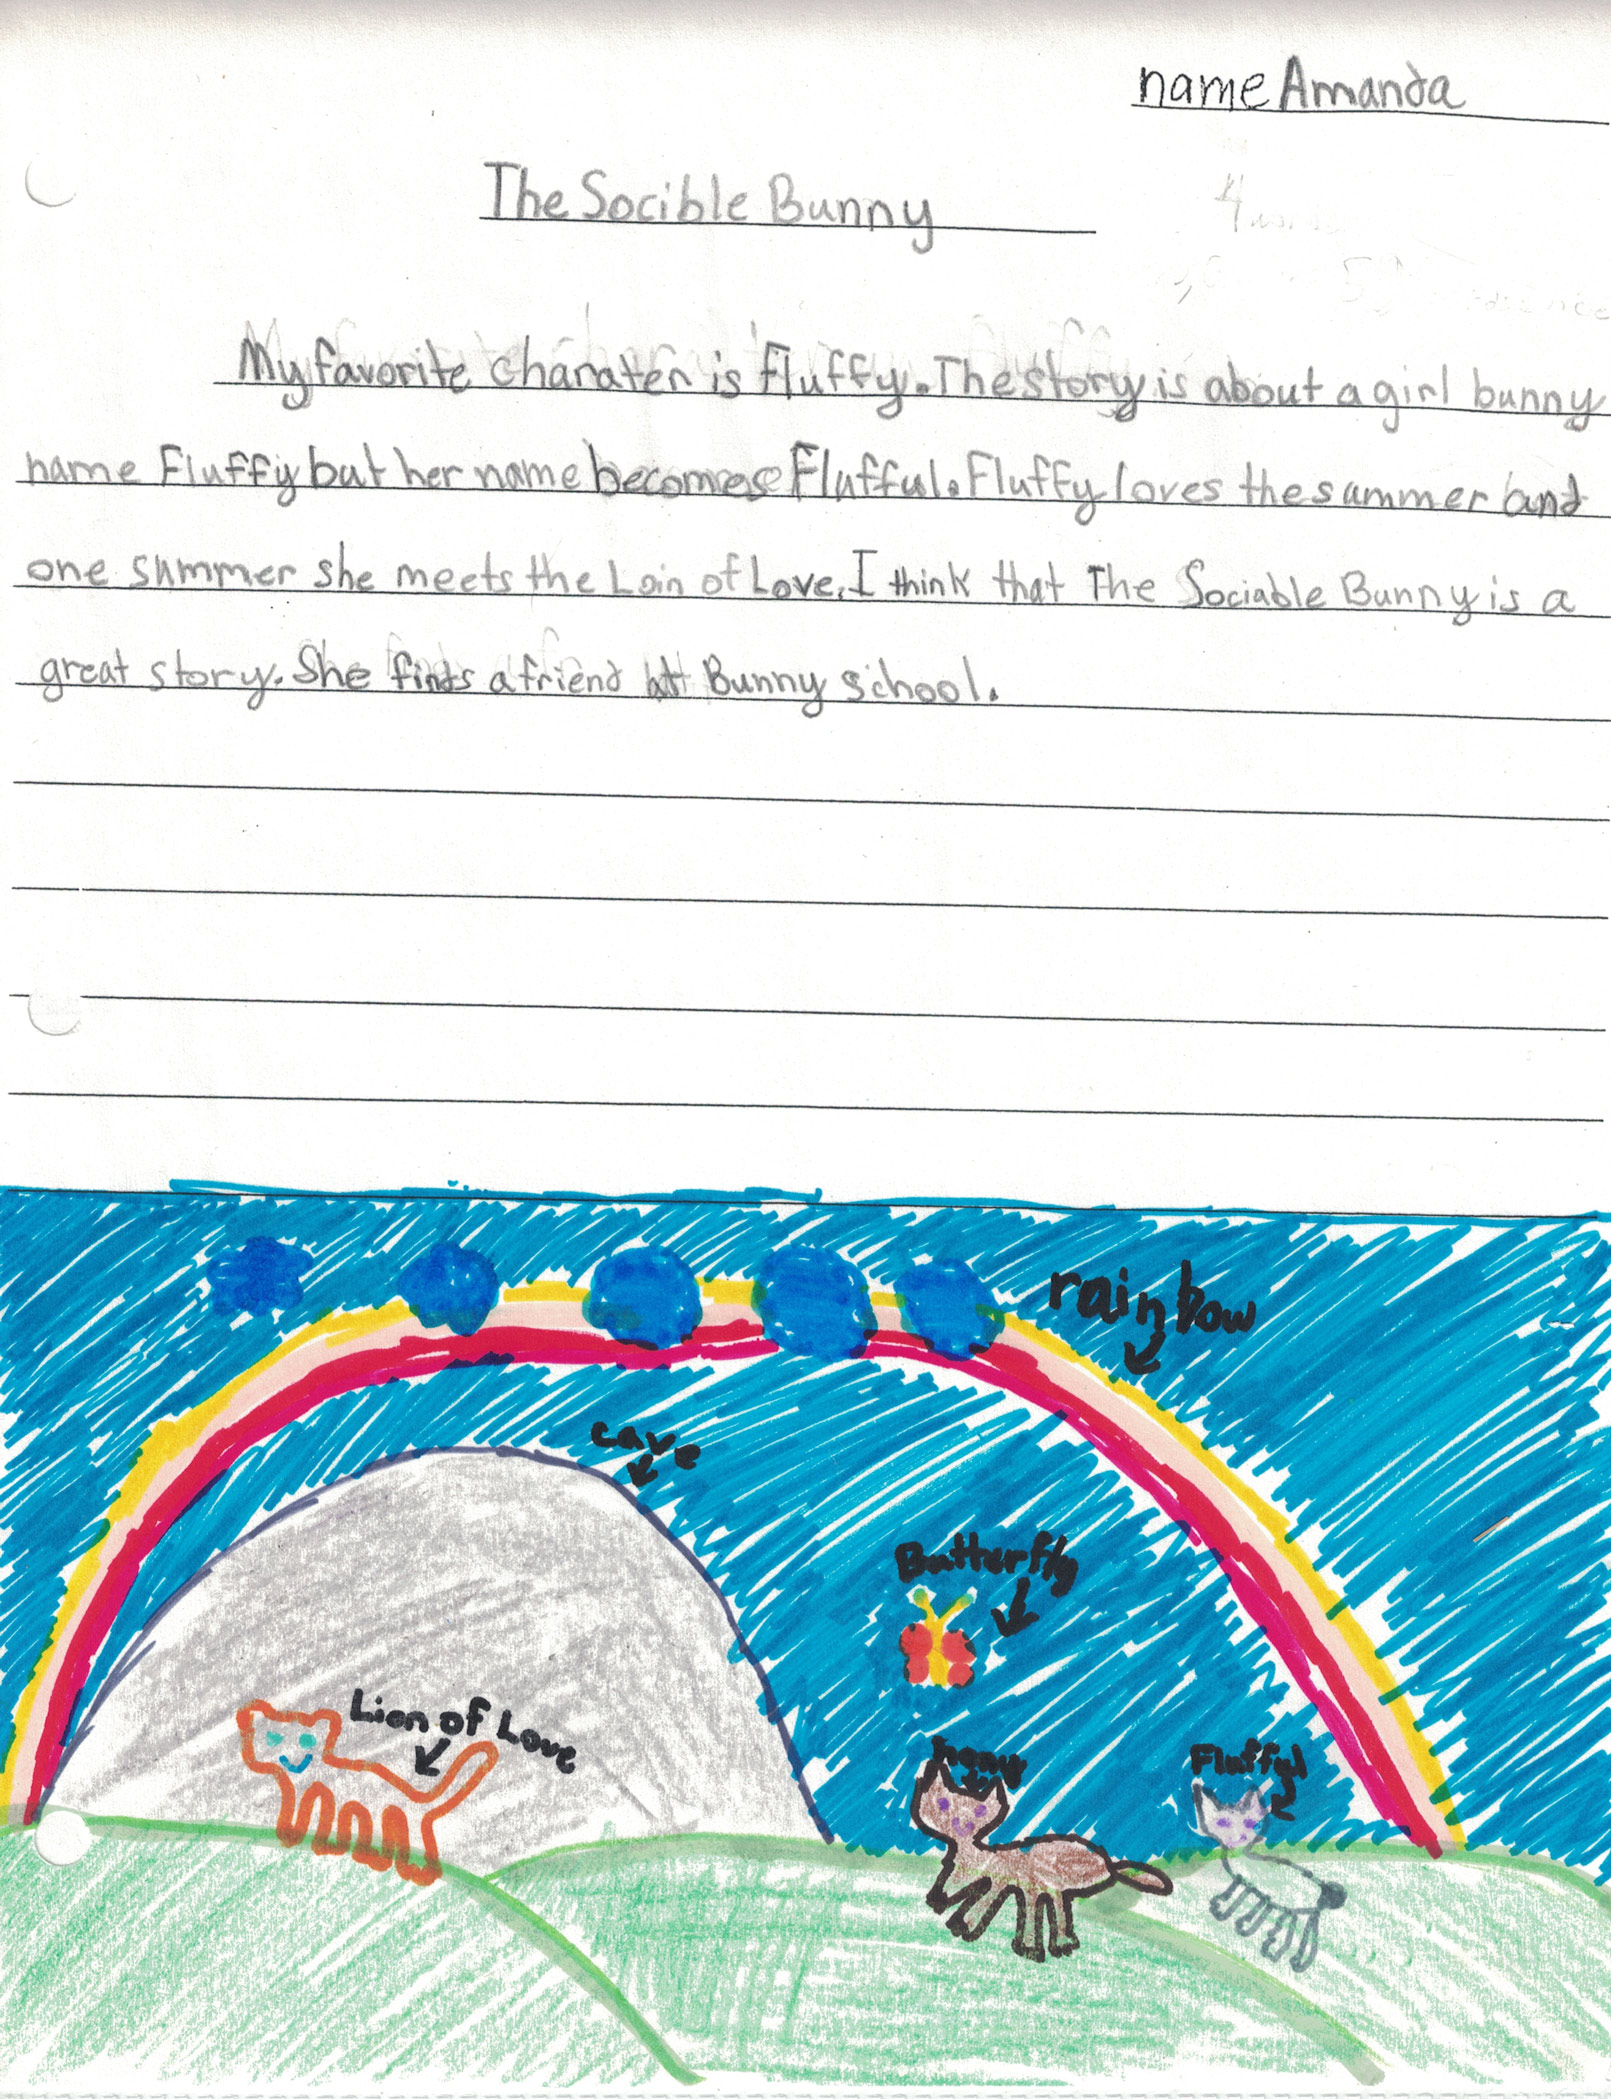 name Amanda
The Socible Bunny
My favorite charater is Fluffy. The story is about a girl bunny
name Fluffy but her name becomes Flufful. Fluffy loves the summer and
one summer she meets the Loin of Love. I think that The Sociable Bunny is a
great story. She finds a friend at Bunny school.
rainbow
cave
Butterfly
Lion of Love
Fluffyl